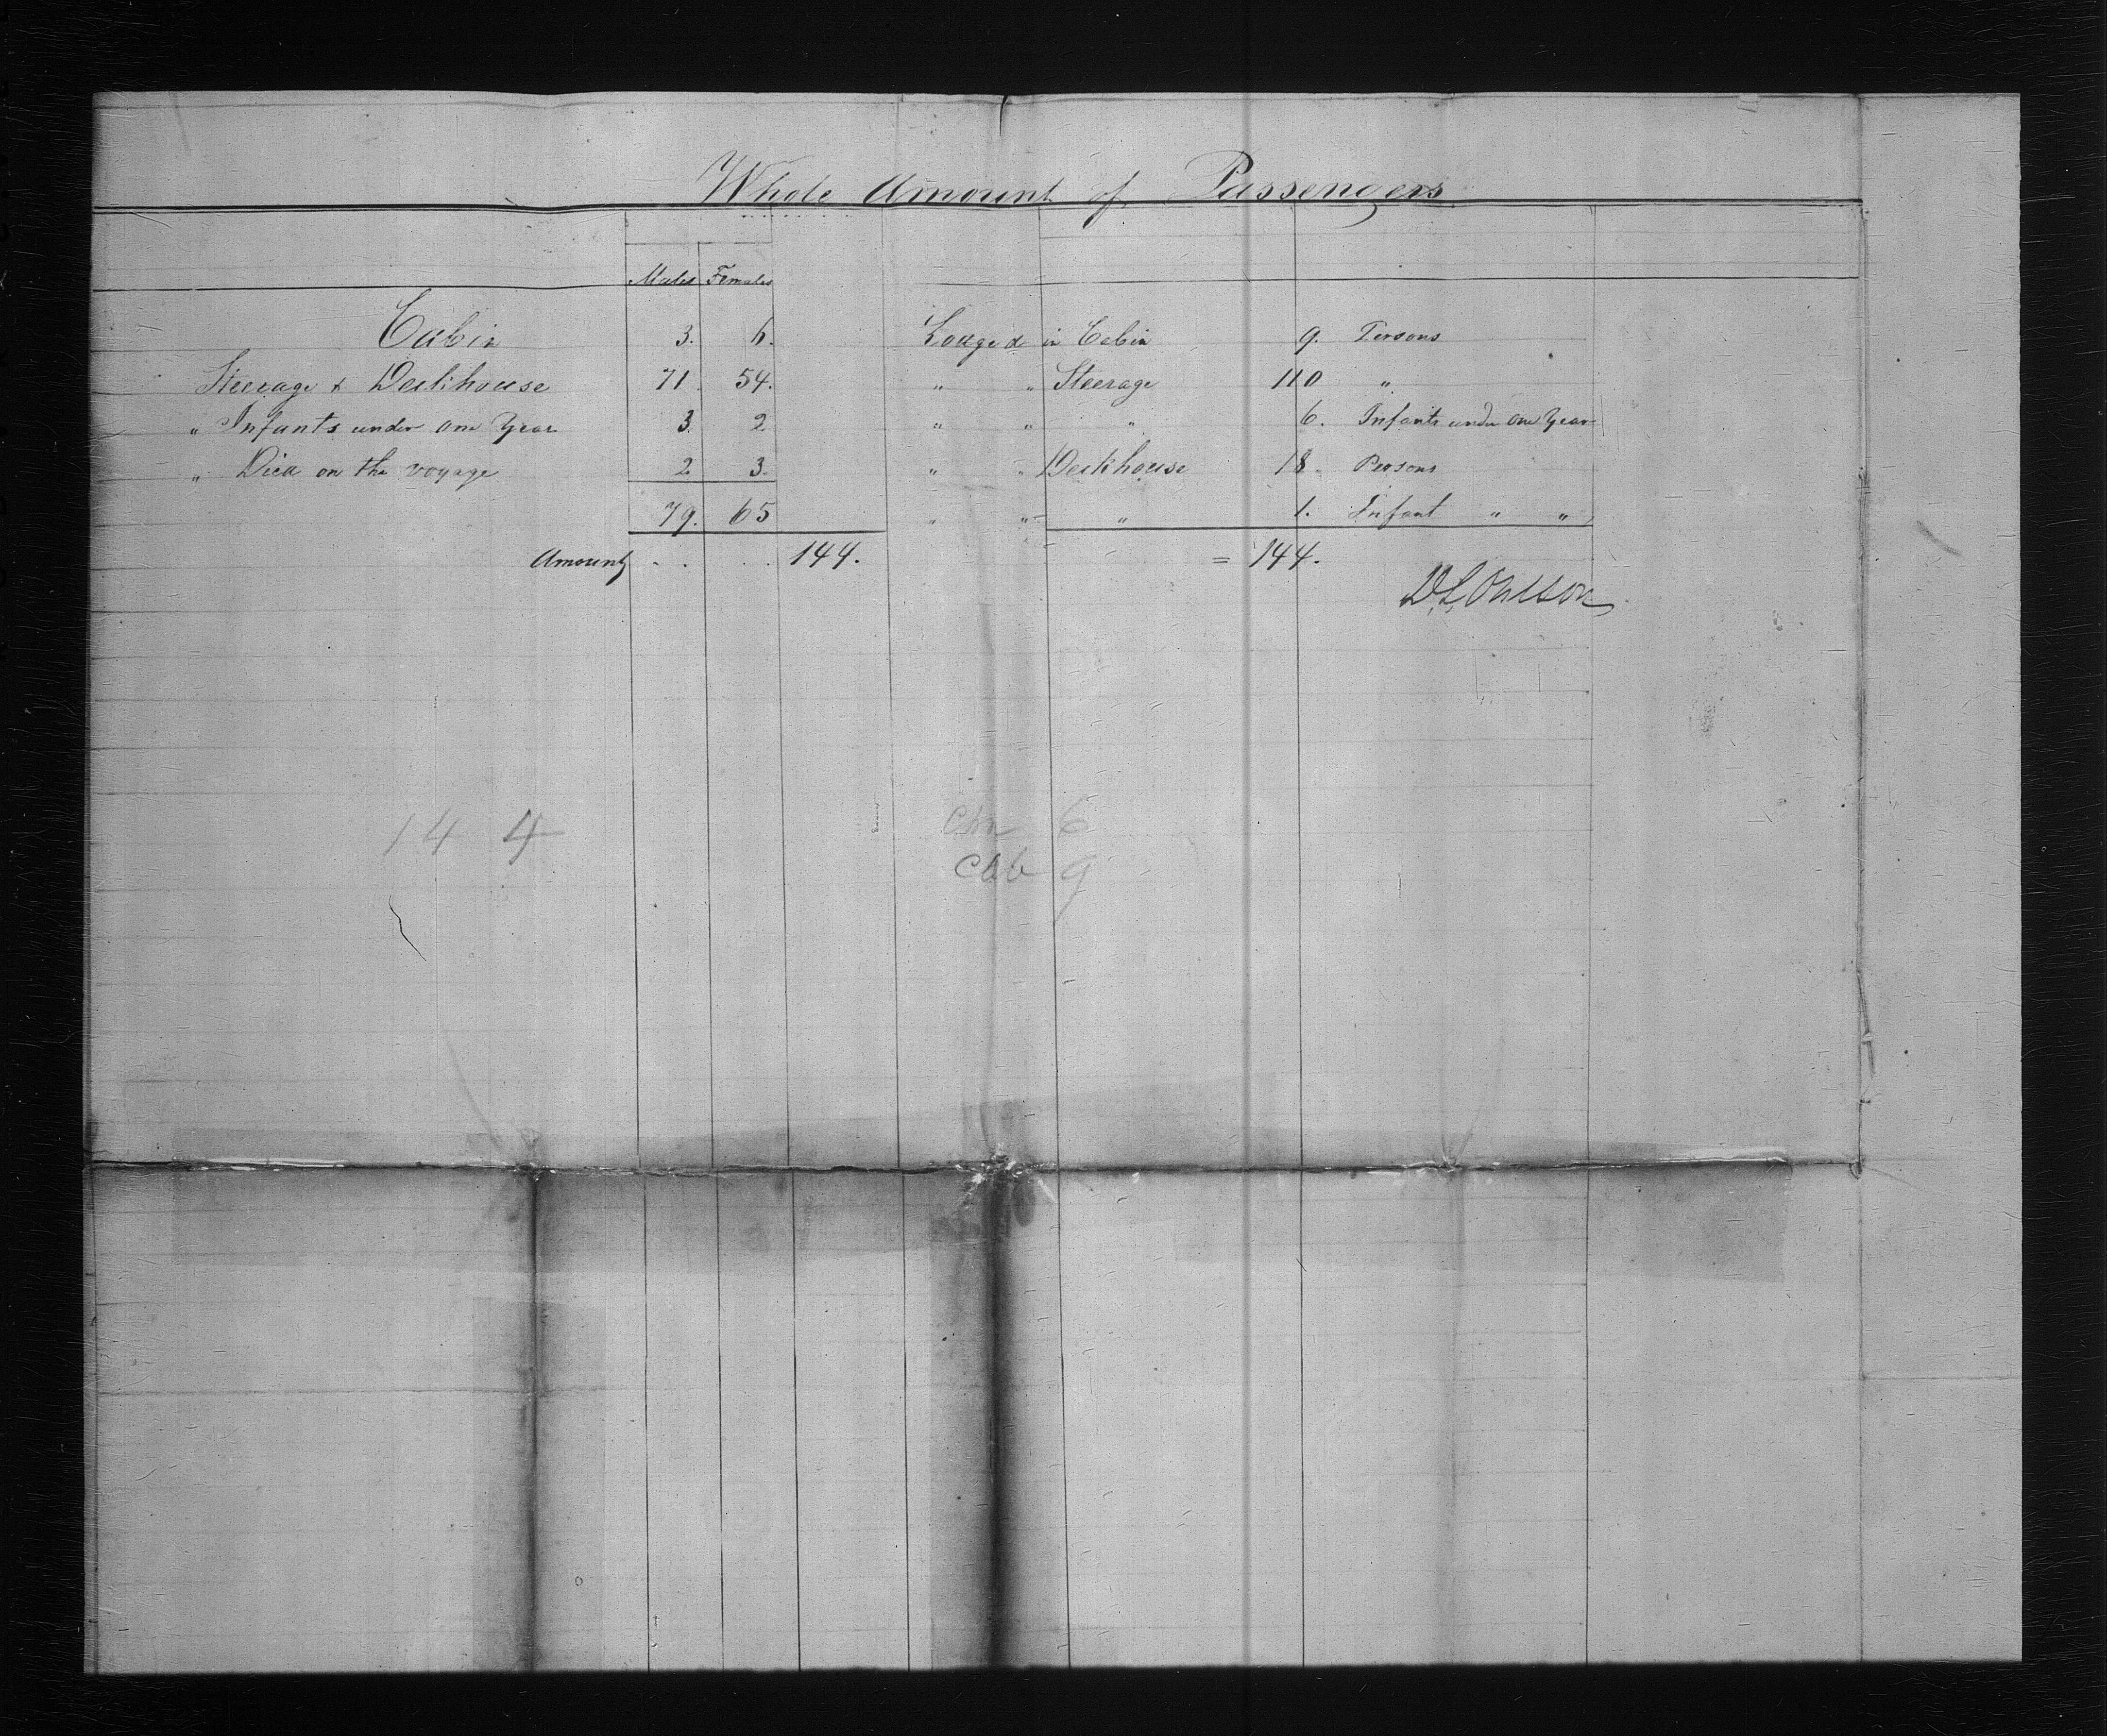 Whole Amount of Passengers
Males Females
Cabin 3. 6. Lodged in Cabin 9. Persons
Steerage & Deckhouse 71. 54. " " Steerage 110 "
" Infants under One Year 3 2 " " " 6. Infants under One Year
" Died on the voyage 2 3. " " Deckhouse 18. Persons
79. 65 " " " 1. Infant " "
Amount . . . . 144. = 144.
14 4 6
Cab 9